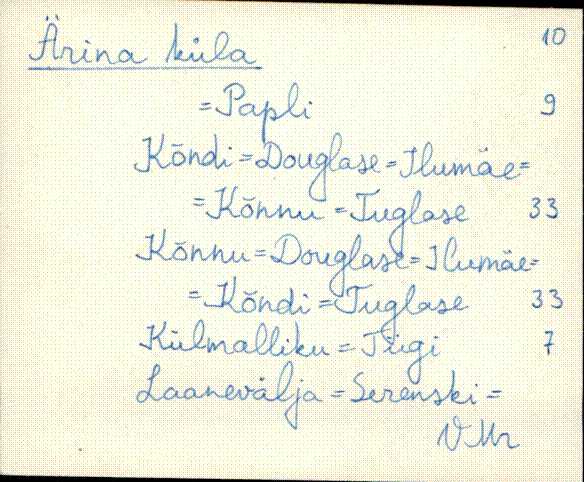 Ärina küla 10
=Papli 9
Kõndi=Douglase=Ilumäe=
=Kõnnu=Tuglase 33
Kõnnu=Douglase=Ilumäe=
=Kõndi=Tuglase 33
Külmalliku=Tiigi 7
Laanevälja=Serenski=
VMr